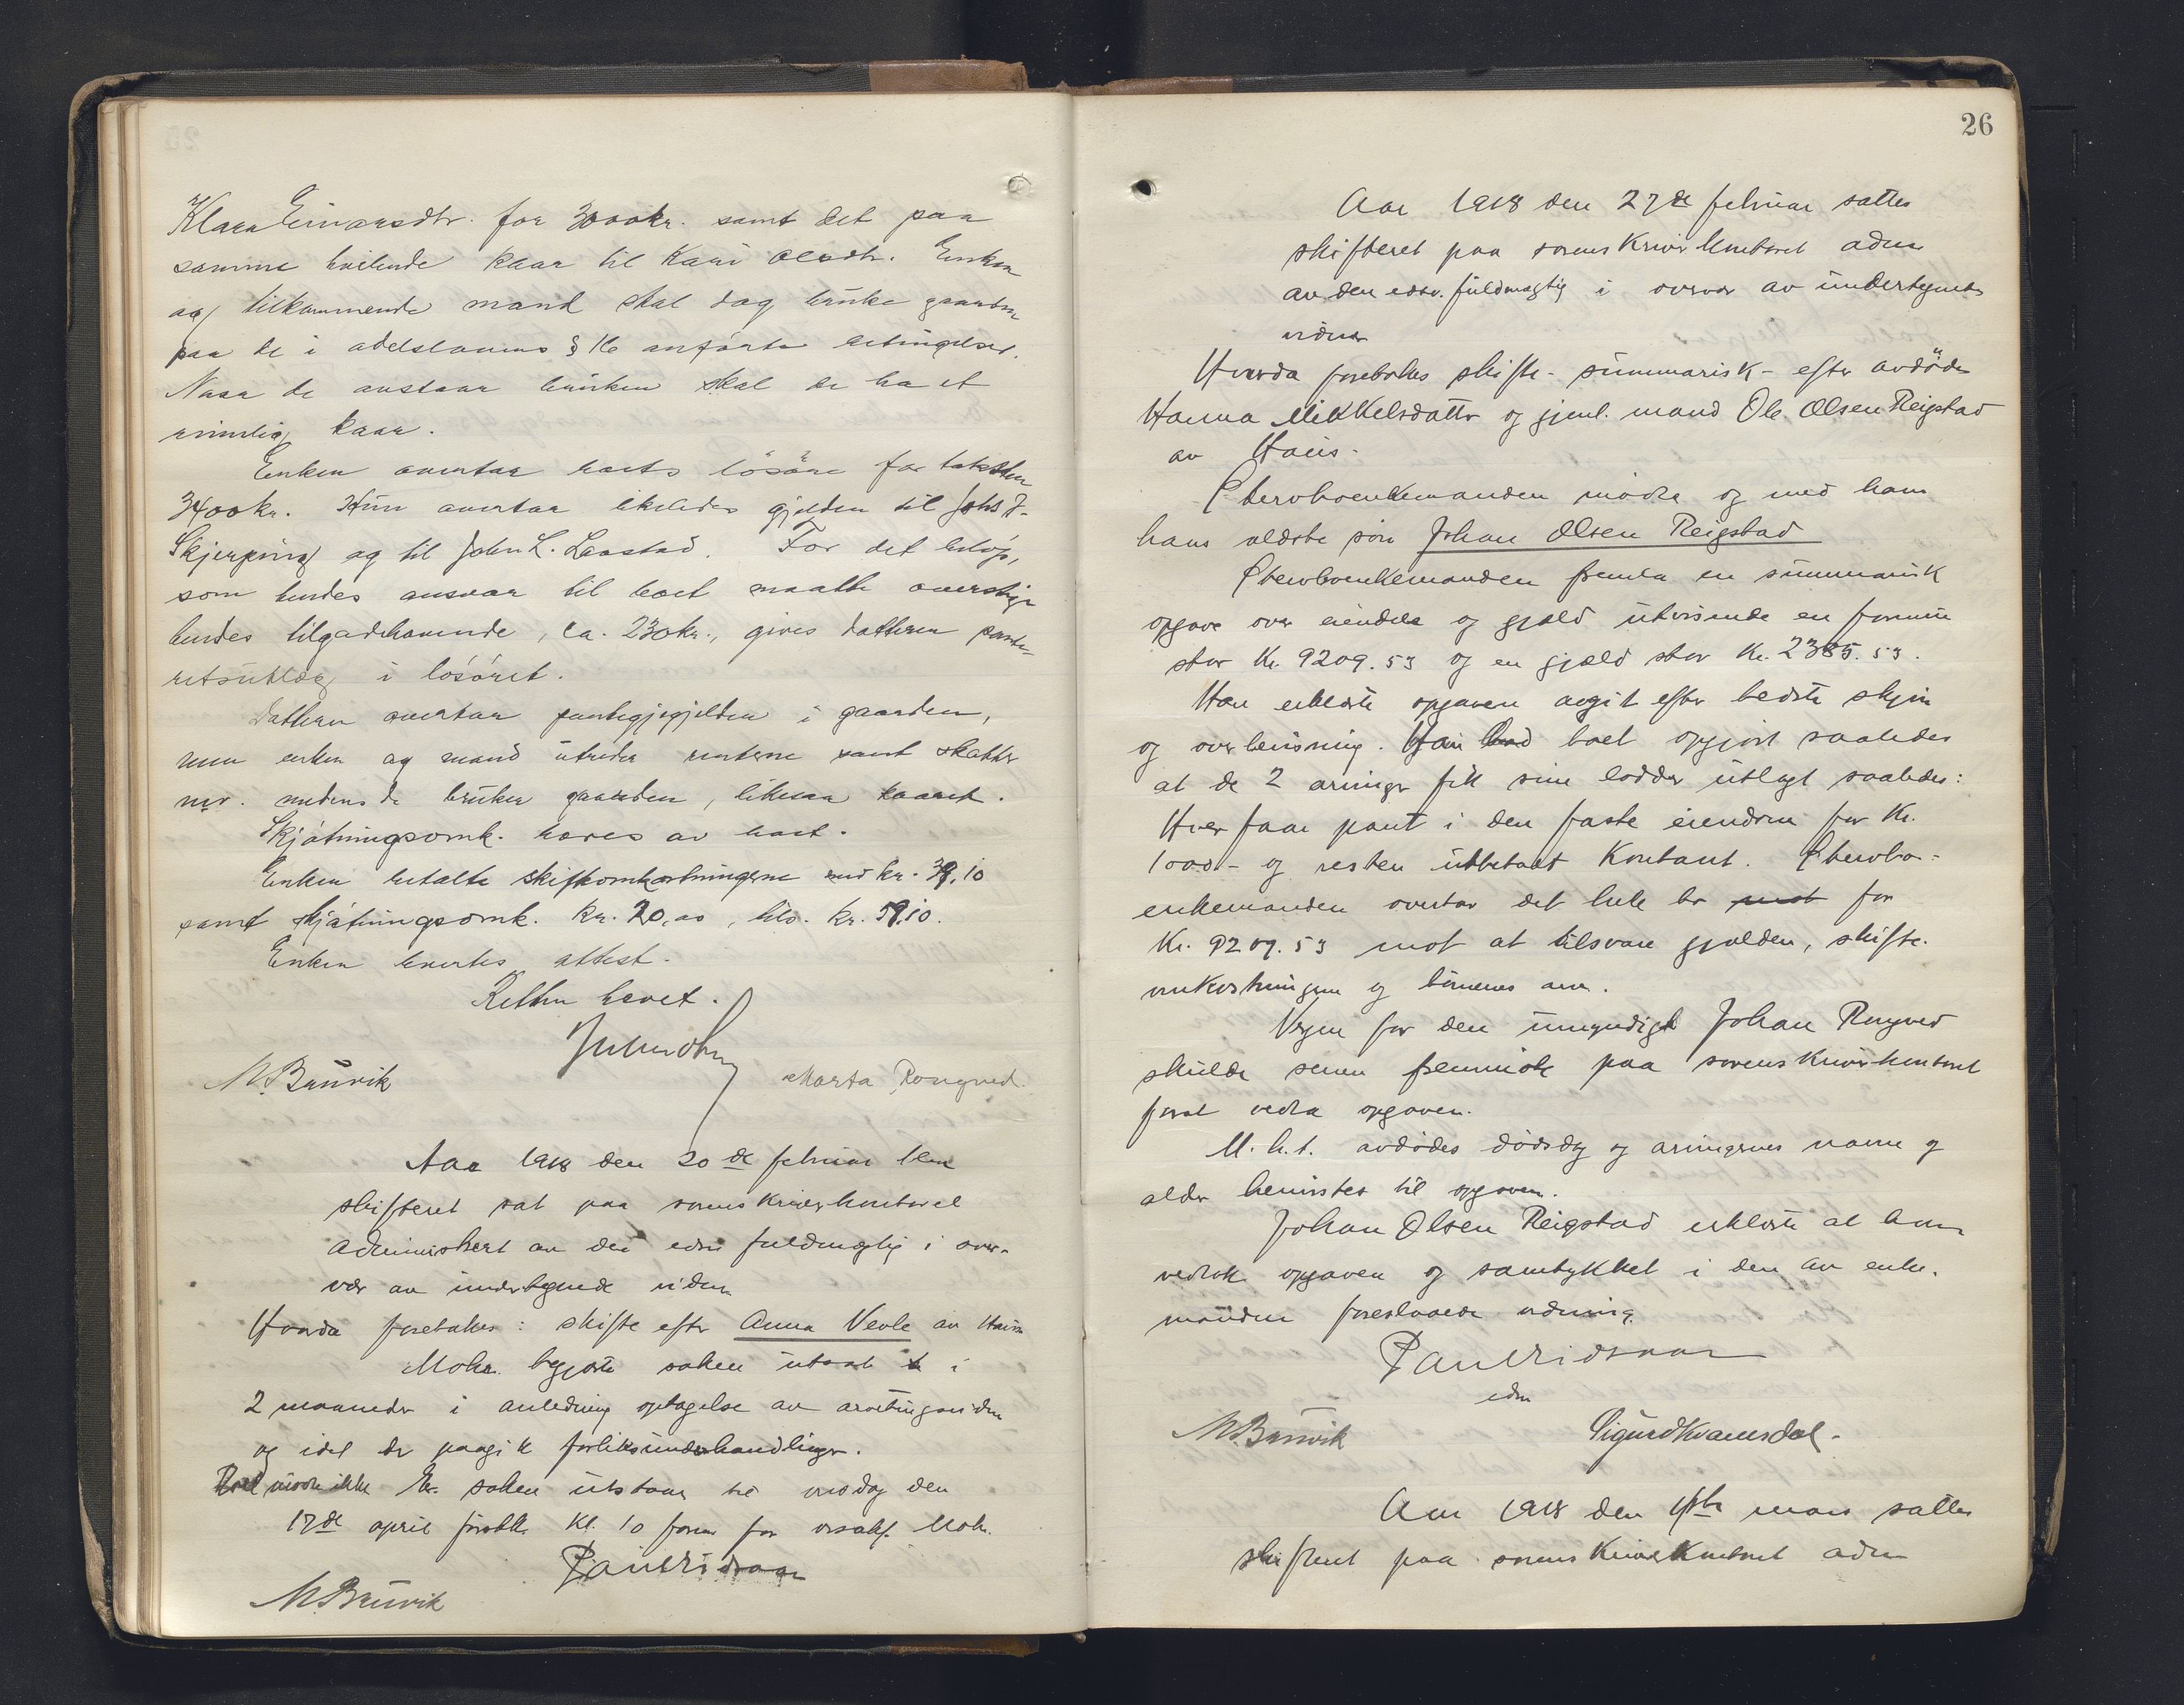 Klara Einarsdtr. for 3000 kr. samt det paa
samme hvilende kaar til Kari Olsdtr. Enken
og tilkommende mand skal dog bruke gaarden
paa de i odelslovens § 16 anførte betingelser.
Naar de avstaar bruken skal de ha et
rimelig kaar.
Enken overtar boets løsøre for taksten
3400 kr. Hun overtar likeledes gjelden til Johs J.
Skjerping og til John L. Laastad. For det beløp,
som hendes ansvar til boet maatte overstige
hendes tilgodehavende, ca. 230 kr., gives datteren pante-
retsutlæg i løsøret.
Datteren overtar pantegjegjelden i gaarden,
men enken og mand utreder renterne samt skatter
mv. medens de bruker gaarden, likesaa kaaret.
Skjøtningsomk. bæres av boet.
Enken betalte skifteomkostningerne med kr. 39,10
samt skjøtningsomk. kr. 20,00, tils. kr. 59,10.
Enken levertes attest.
Retten hævet.
M. Bruvik
Marta Rongved.
Aar 1918 den 20de februar blev
skifteret sat paa sorenskriverkontoret
administrert av den edsv fuldmægtig i over-
vær av undertegnede vidner
Hvorda foretokes: skifte efter Anna Vevle av Haus
Mohr. begjærte saken utsat i
2 maaneder i anledning optagelse av
og idet der paagik forliksunderhandlinger.
møtte ikke Er. saken utstaar til onsdag den
17de april førstk. Kl. 10 form for orsakf. Mohr.
Pauli
M. Bruvik
26
Aar 1918 den 27de februar sattes
skifteret paa sorenskriverkontoret adm
av den edsv. fuldmægtig i overvær av undertegnede
vidner
Hvorda foretokes skifte - summarisk - efter avdøde
Hanna Mikkelsdatter og gjenl. mand Ole Olsen Reigstad
av Haus.
Stervboenkemanden møtte og med ham
hans ældste søn Johan Olsen Reigstad
Stervboenkemanden fremla en summarisk
opgave over eiendele og gjæld utvisende en formue
stor Kr. 9209.53 og en gjæld stor Kr. 2385.53.
Han erklærte opgaven avgit efter bedste skjøn
og overbevisning. Han boet opgjort saaledes
at de 2 arvinger fik sine lodder utlagt saaledes:
Hver faar pant i den faste eiendom for Kr.
1000 - og resten utbetalt kontant. Stervbo-
enkemanden overtar det hele bo for
Kr. 9209.53 mot at tilsvare gjælden, skifte-
omkostningerne og børnenes arv.
Vergen for den umyndige Johan Rongved
skulde senere fremmøte paa sorenskriverkontoret
forat vedta opgaven.
M.h.t. avdødes dødsdag og arvingernes navne og
alder henvistes til opgaven.
Johan Olsen Reigstad erklærte at han
vedtok opgaven og samtykket i den av enke-
manden foreslaaede ordning.
Pauli
edsv
M. Bruvik
Sigurd Kvamsdal.
Aar 1918 den 1ste mars sattes
skifteret paa sorenskriverkontoret adm